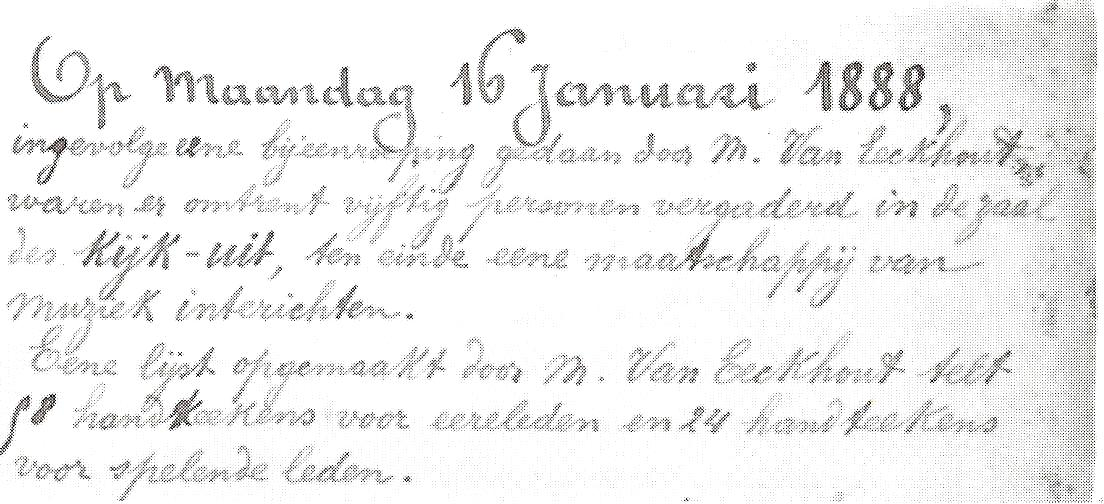 Op Maandag 16 Januari 1888,
ingevolge eene bijeenroeping gedaan door M. Van Eeckhout
waren er omtrent vijftig personen vergaderd in de zaal
des Kijk-uit, ten einde eene maatschappij van
Muziek interichten.
Eene lijst opgemaakt door M. Van Eeckhout telt
58 handteekens voor eereleden en 24 handteekens
voor spelende leden.